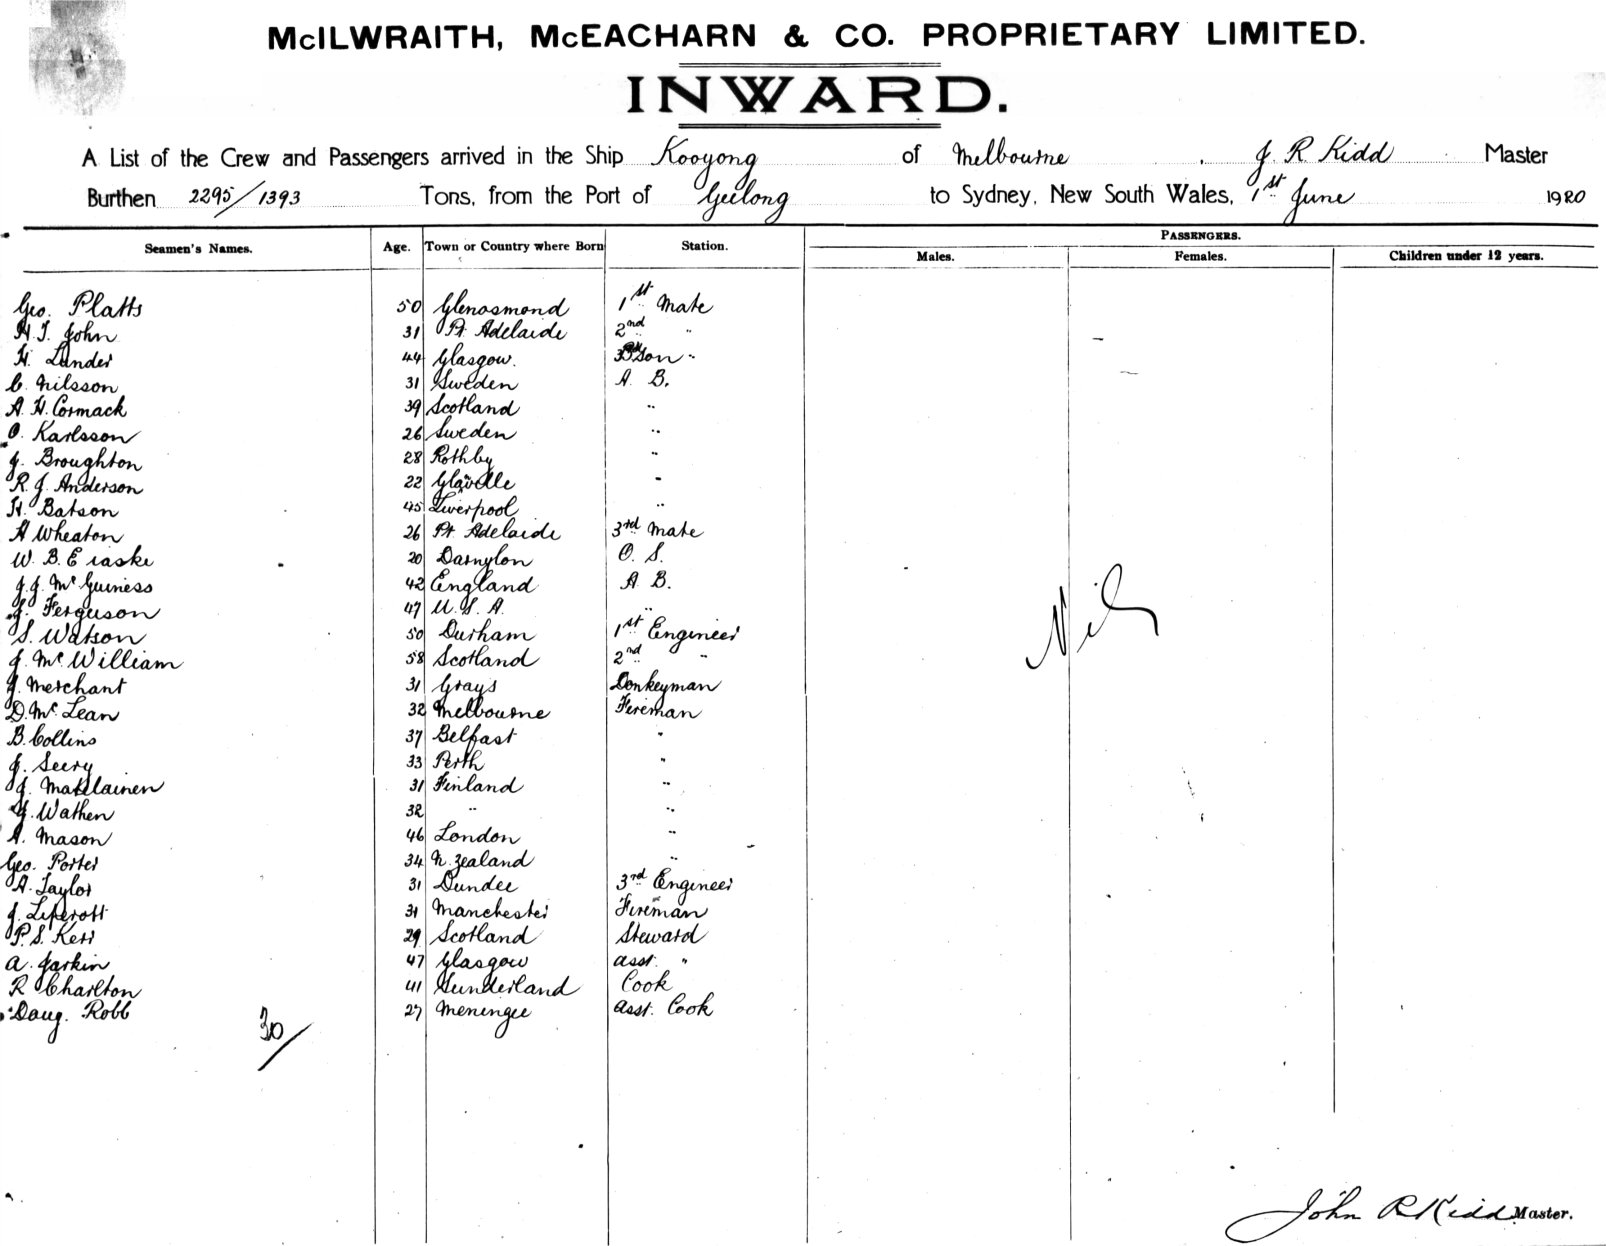 McILWRAITH, McEACHARN & CO. PROPRIETARY LIMITED.
INWARD.
A List of the Crew and Passengers arrived in the Ship Kooyong of Melbourne, J. R. Kidd Master
Burthen 2295/1393 Tons, from the Port of Geelong to Sydney, New South Wales, 1st June 1920
PASSENGERS.
Seamen's Names. Age. Town or Country where Born Station. Males. Females. Children under 12 years.
Geo. Platts 50 Glenosmond 1st Mate
H. J. John 31 Pt. Adelaide 2nd "
H. Lunder 44 Glasgow.
C. Nilsson 31 Sweden A. B.
A. H. Cormack 39 Scotland "
O. Karlsson 26 Sweden "
J. Broughton 28 Rothby "
R. J. Anderson 22 "
H. Batson 45 Liverpool "
A Wheaton 26 Pt. Adelaide 3rd Mate
W. B. E 20 O. S.
J. J. McGuiness 42 England A B.
J. Ferguson 47 U. S. A. "
S. Watson 50 Durham 1st Engineer
J. McWilliam 58 Scotland 2nd "
J. Merchant 31 Grays Donkeyman
D. McLean 32 Melbourne Fireman
B. Collins 37 Belfast "
J. Seery 33 Perth "
J. 31 Finland "
Y. Wathen 32 " "
A. Mason 46 London "
Geo. Porter 34 N. Zealand "
A. Taylor 31 Dundee 3rd Engineer
J. 31 Manchester Fireman
P. S. Kerr 29 Scotland Steward
A. Larkin 47 Glasgow Asst. "
R Charlton 41 Sunderland Cook
Doug. Robb 27 Meningee Asst. Cook
Nil
30/
John R Kidd Master.